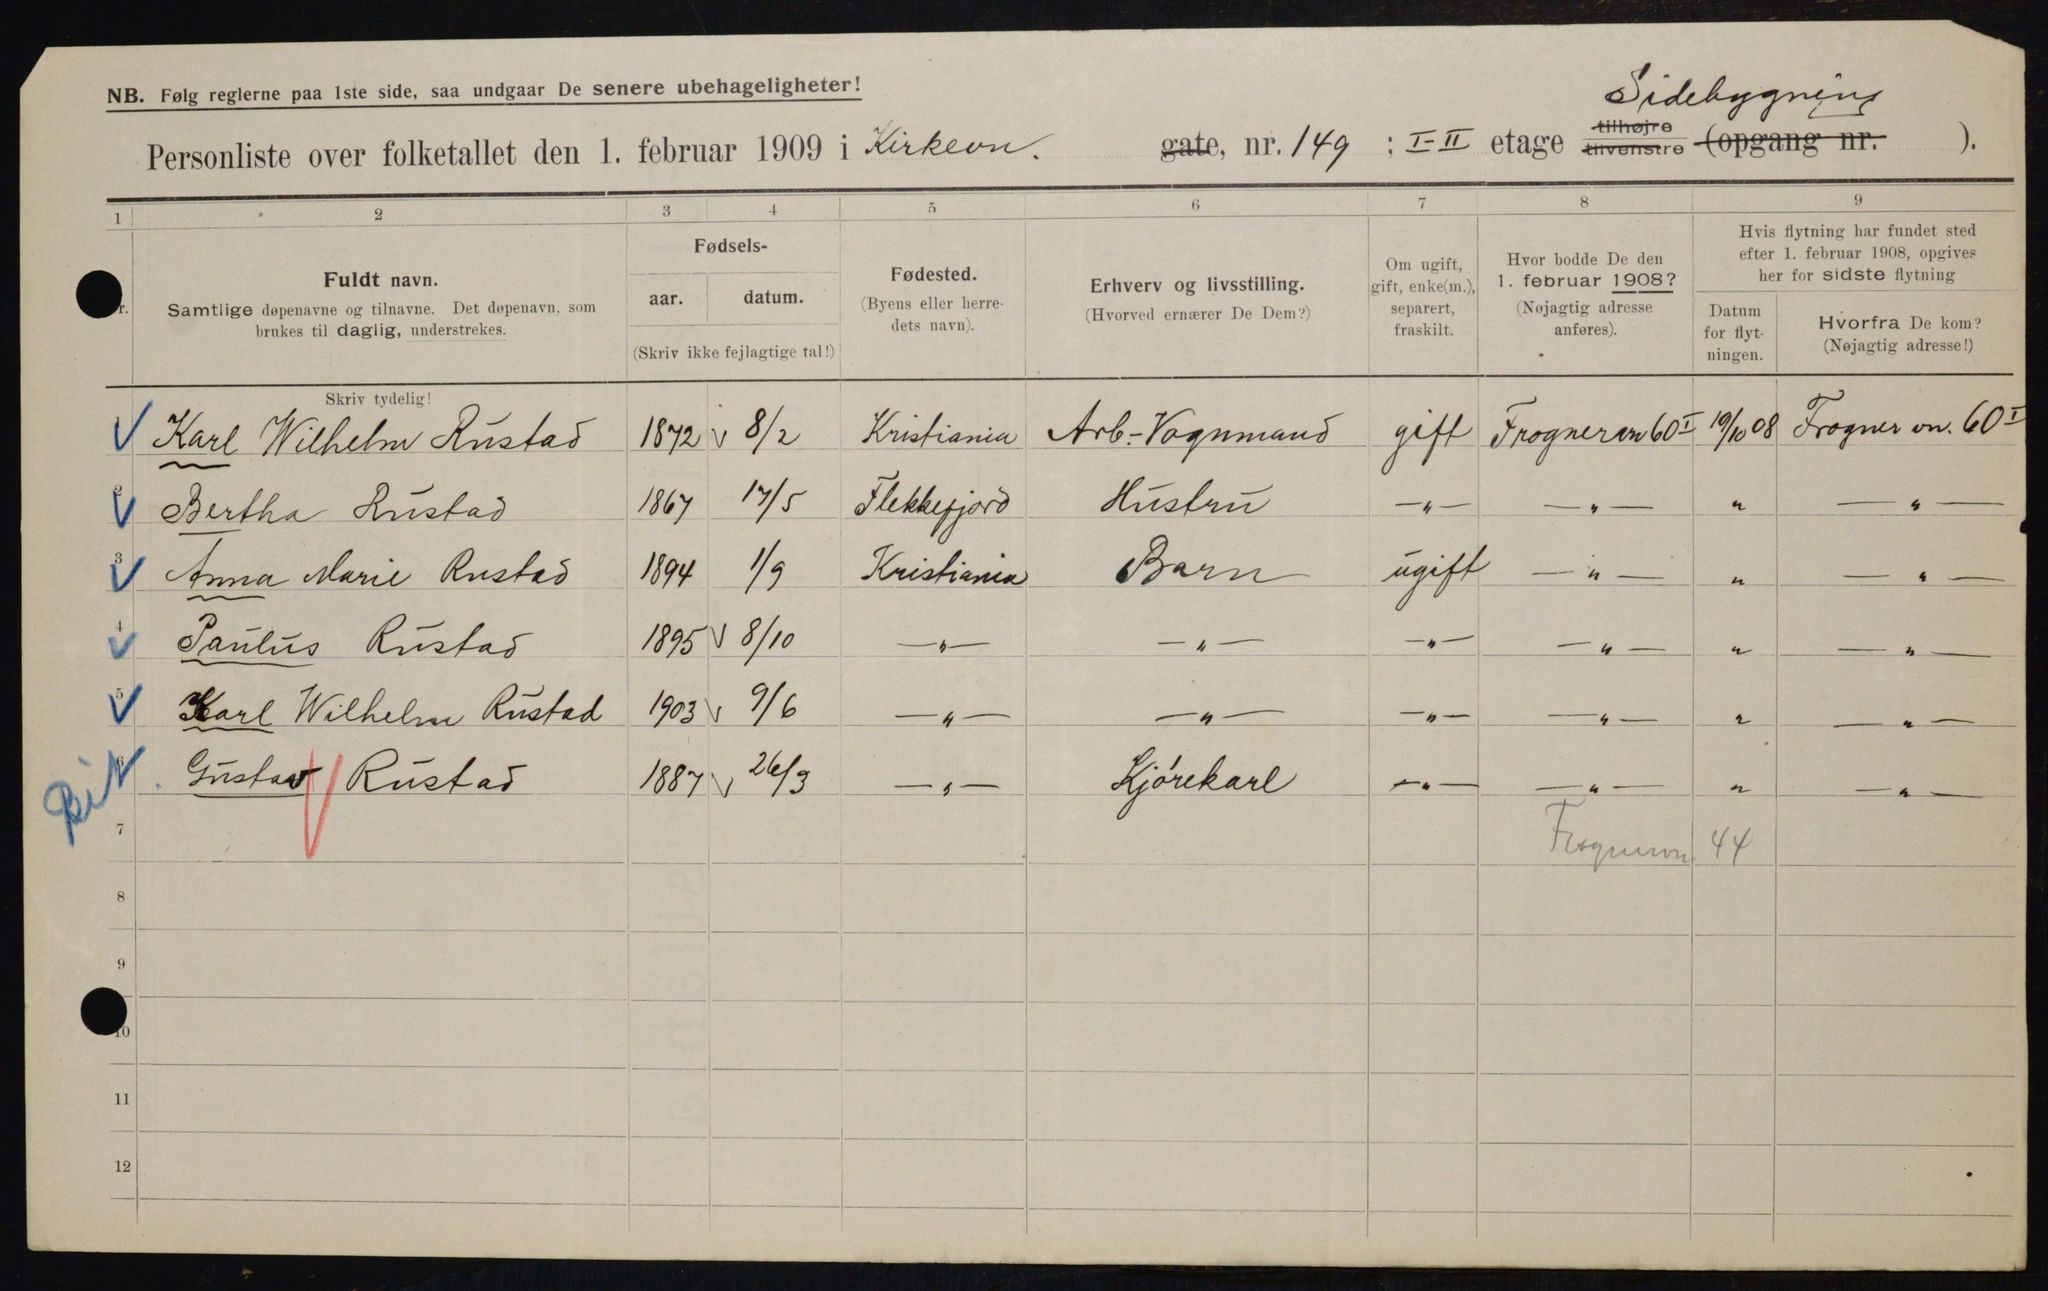 NB. Følg reglerne paa 1ste side, saa undgaar De senere ubehageligheter!
Sidebygning
Personliste over folketallet den 1. februar 1909 i Kirkevn. gate, nr. 149 ; I-II etage tilhøjre tilvenstre (opgang nr. ).
1 2 3 4 5 6 7 8 9
Fuldt navn.
Samtlige døpenavne og tilnavne. Det døpenavn, som
brukes til daglig, understrekes.
Fødsels-
aar. datum.
(Skriv ikke fejlagtige tal!)
Fødested.
(Byens eller herre-
dets navn).
Erhverv og livsstilling.
(Hvorved ernærer De Dem?)
Om ugift,
gift, enke(m.),
separert,
fraskilt.
Hvor bodde De den
1. februar 1908?
(Nøjagtig adresse
anføres).
Hvis flytning har fundet sted
efter 1. februar 1908, opgives
her for sidste flytning
Datum
for flyt-
ningen.
Hvorfra De kom?
(Nøjagtig adresse!)
Skriv tydelig!
Karl Wilhelm Rustad 1872 8/2 Kristiania Arb.-Vognmand gift Frognervn 60 I 19/10 08 Frogner vn. 60 I
2 Bertha Rustad 1867 17/5 Flekkefjord Hustru —"— —"— " —"—
3 Anna Marie Rustad 1894 1/9 Kristiania Barn ugift —"— " —"—
4 Paulus Rustad 1895 8/10 —"— —"— —"— —"— " —"—
5 Karl Wilhelm Rustad 1903 9/6 —"— —"— —"— —"— " —"—
6 Gustav Rustad 1887 26/3 —"— Kjørekarl —"— —"— " —"—
7 Frognervn. 44
8
9
10
11
12